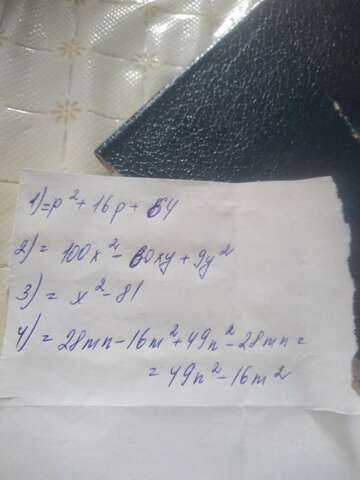 1) = p² + 16p + 64
2) = 100x² - 60xy + 9y²
3) = x² - 81
4) = 28mn - 16m² + 49n² - 28mn =
= 49n² - 16m²